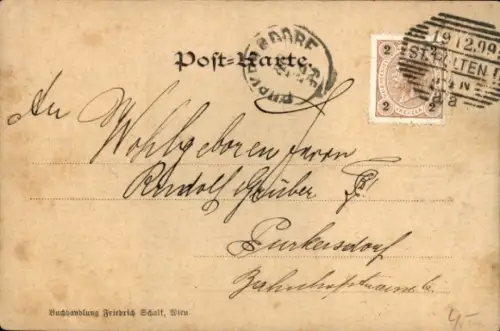 Post-Karte.
PURKERSDORF
2 2
19 12 99
ST. PÖLTEN
2 2
An
Wohlgeboren Herrn
Rudolf Gruber
Purkersdorf
Bahnhofstrasse
Buchhandlung Friedrich Schalk, Wien